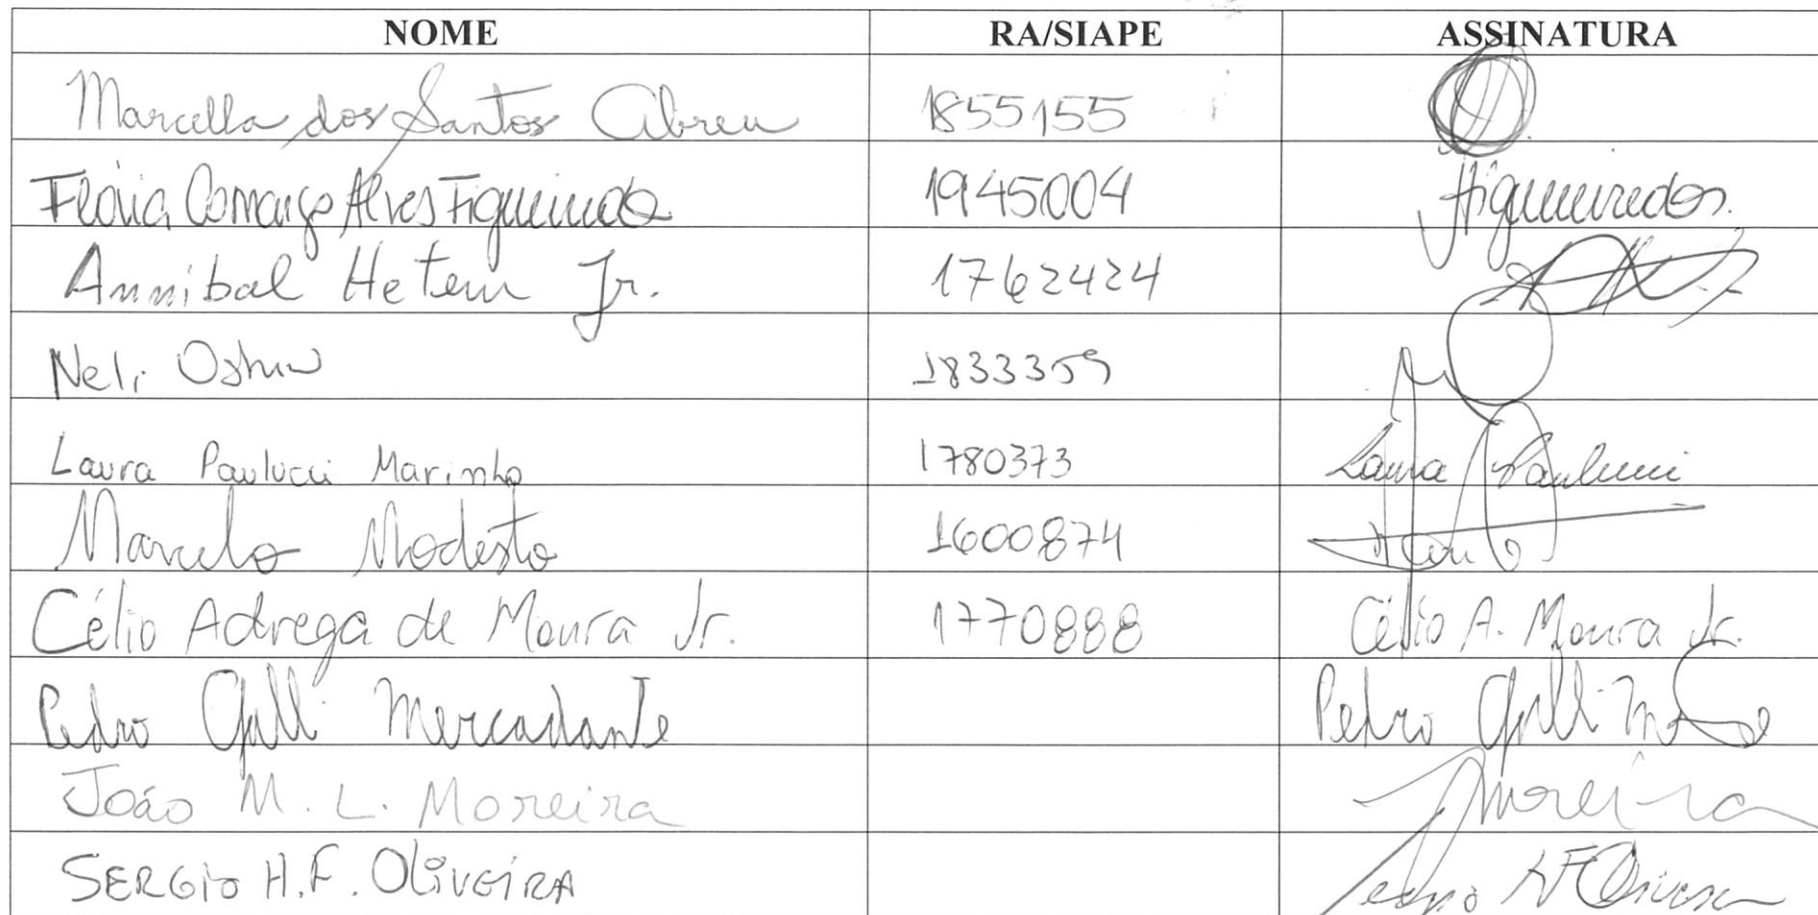 NOME RA/SIAPE ASSINATURA
Marcella dos Santos Abreu 1855155
Flávia Camargo Alves Figueiredo 1945004 Figueiredo
Annibal Hetem Jr. 1762424
Neli 1833359
Laura Paulucci Marinho 1780373 Laura Paulucci
Marcelo Modesto 1600874
Célio Adrega de Moura Jr. 1770888 Célio A. Moura Jr.
Pedro Galli Mercadante Pedro Galli
João M. L. Moreira Moreira
SERGIO H.F. OLIVEIRA